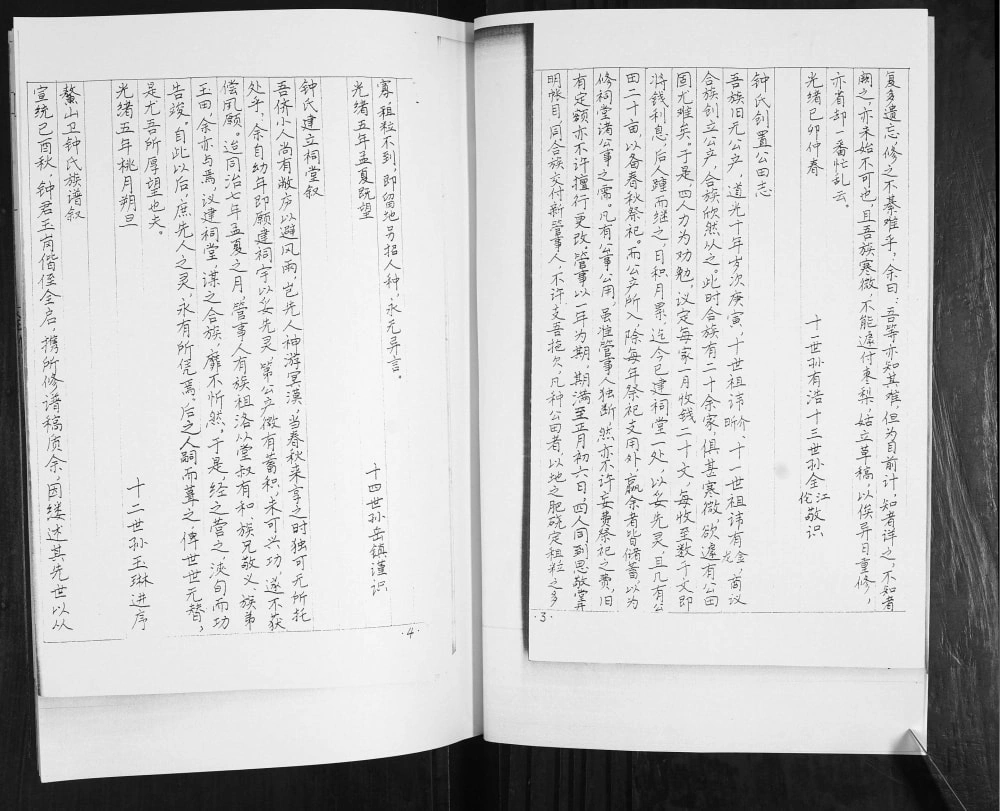 复多遗忘,修之不綦难乎,余曰:吾等亦知其难,但为目前计,知者详之,不知者
阙之,亦未始不可也,且吾族寒微,不能遽付枣梨,姑立草稿,以俟异日重修,
亦省却一番忙乱云。
十一世孙有浩十三世孙全江伦敬识
光绪己卯仲春
钟氏创置公田志
吾族旧无公产,道光十年岁次庚寅,十世祖讳昕介、十一世祖讳有金龙商议
合族创立公产,合族欣然从之。此时合族有二十余家,俱甚寒微,欲遽有公田
固尤难矣。于是,四人力为劝勉,议定每家一月收钱二十文,每收至数千文即
将钱利息,后人踵而继之,日积月累,迄今已建祠堂一处,以妥先灵,且几有公
田二十亩,以备春秋祭祀。而公产所入,除每年祭祀支用外,赢余者皆储蓄,以为
修祠堂诸公事之需。凡有公事公用,虽准管事人独断,然亦不许妄费祭祀之费,旧
有定额亦不许擅行更改,管事以一年为期,期满至正月初六日,四人同到思敬堂开
明帐目,同合族交付新管事人,不许支吾拖欠,凡种公田者,以地之肥硗定租粒之多
·3·
寡,租粒不到,即留地另招人种,永无异言。
十四世孙岳镇谨识
光绪五年孟夏既望
钟氏建立祠堂叙
吾侪小人尚有敝庐以避风雨,岂先人神游冥漠,当春秋来享之时独可无所托
处乎,余自幼年即愿建祠宇以妥先灵,第公产微有蓄积,未可兴功,遂不获
偿夙愿。迨同治七年孟夏之月,管事人有族祖洛以堂叔有和、族兄敬义、族弟
玉田,余亦与焉,议建祠堂,谋之合族,靡不忻然,于是,经之营之,浃旬而功
告竣。自此以后,庶先人之灵,永有所凭焉,后之人嗣而葺之,俾世世无替,
是尤吾所厚望也夫。
十二世孙玉琳进序
光绪五年桃月朔旦
鳌山卫钟氏族谱叙
宣统己酉秋,钟君玉岗偕侄全启,携所修谱稿质余,因缕述其先世以从
·4·